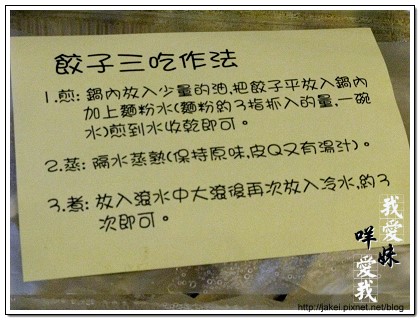 餃子三吃作法
1.煎: 鍋內放入少量的油,把餃子平放入鍋內
加上麵粉水(麵粉約3指抓入的量,一碗
水)煎到水收乾即可。
2.蒸: 隔水蒸熱(保持原味,皮Q又有湯汁)。
3.煮: 放入滾水中大滾後再次放入冷水,約3
次即可。
我愛妹
咩愛我
http://jakei.pixnet.net/blog